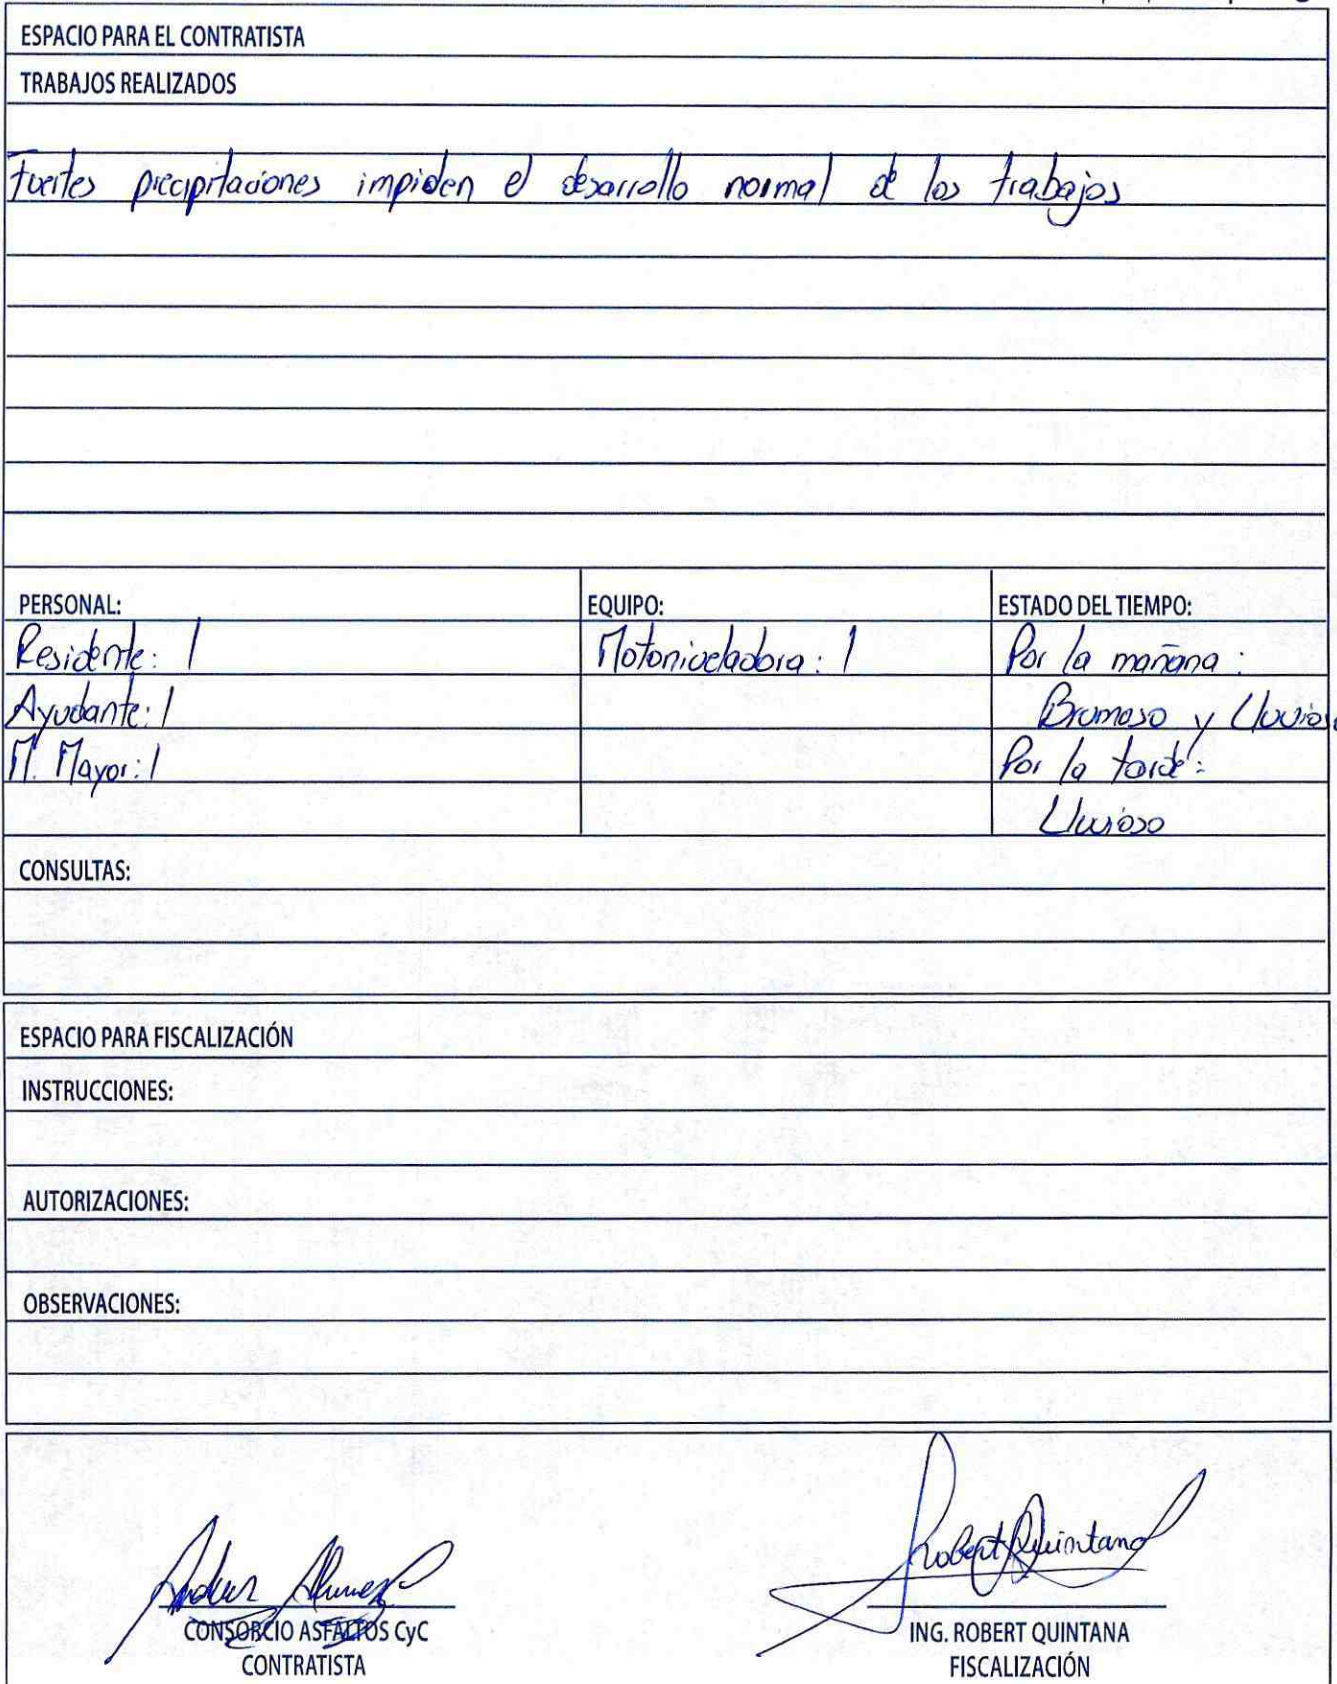 ESPACIO PARA EL CONTRATISTA
TRABAJOS REALIZADOS
Fuertes precipitaciones impiden el desarrollo normal de los trabajos
PERSONAL: EQUIPO: ESTADO DEL TIEMPO:
Residente: 1 Motoniveladora: 1 Por la mañana:
Ayudante: 1 Brumoso y Lluvioso
M. Mayor: 1 Por la tarde:
Lluvioso
CONSULTAS:
ESPACIO PARA FISCALIZACIÓN
INSTRUCCIONES:
AUTORIZACIONES:
OBSERVACIONES:
Robert Quintana
CONSORCIO ASFALTOS CyC ING. ROBERT QUINTANA
CONTRATISTA FISCALIZACIÓN